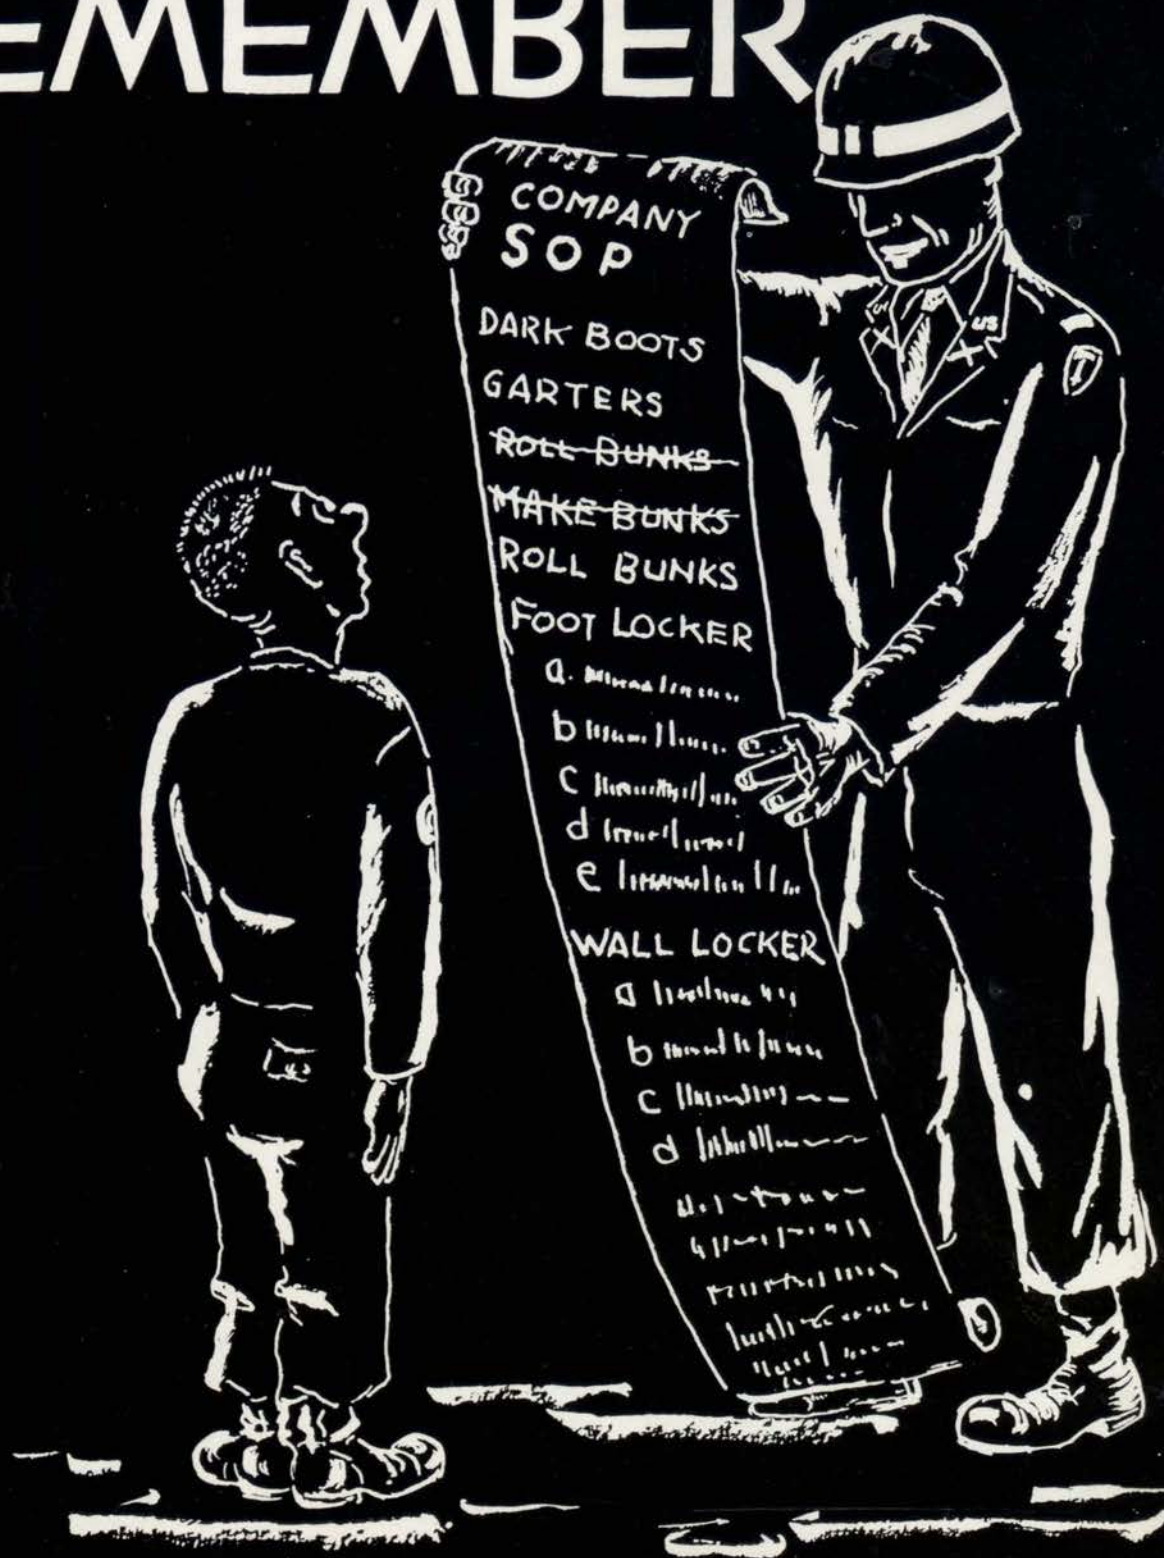 EMEMBER
COMPANY
SOP
DARK BOOTS
GARTERS
ROLL BUNKS
MAKE BUNKS
ROLL BUNKS
FOOT LOCKER
a.
b
c
d
e
WALL LOCKER
a
b
c
d
US